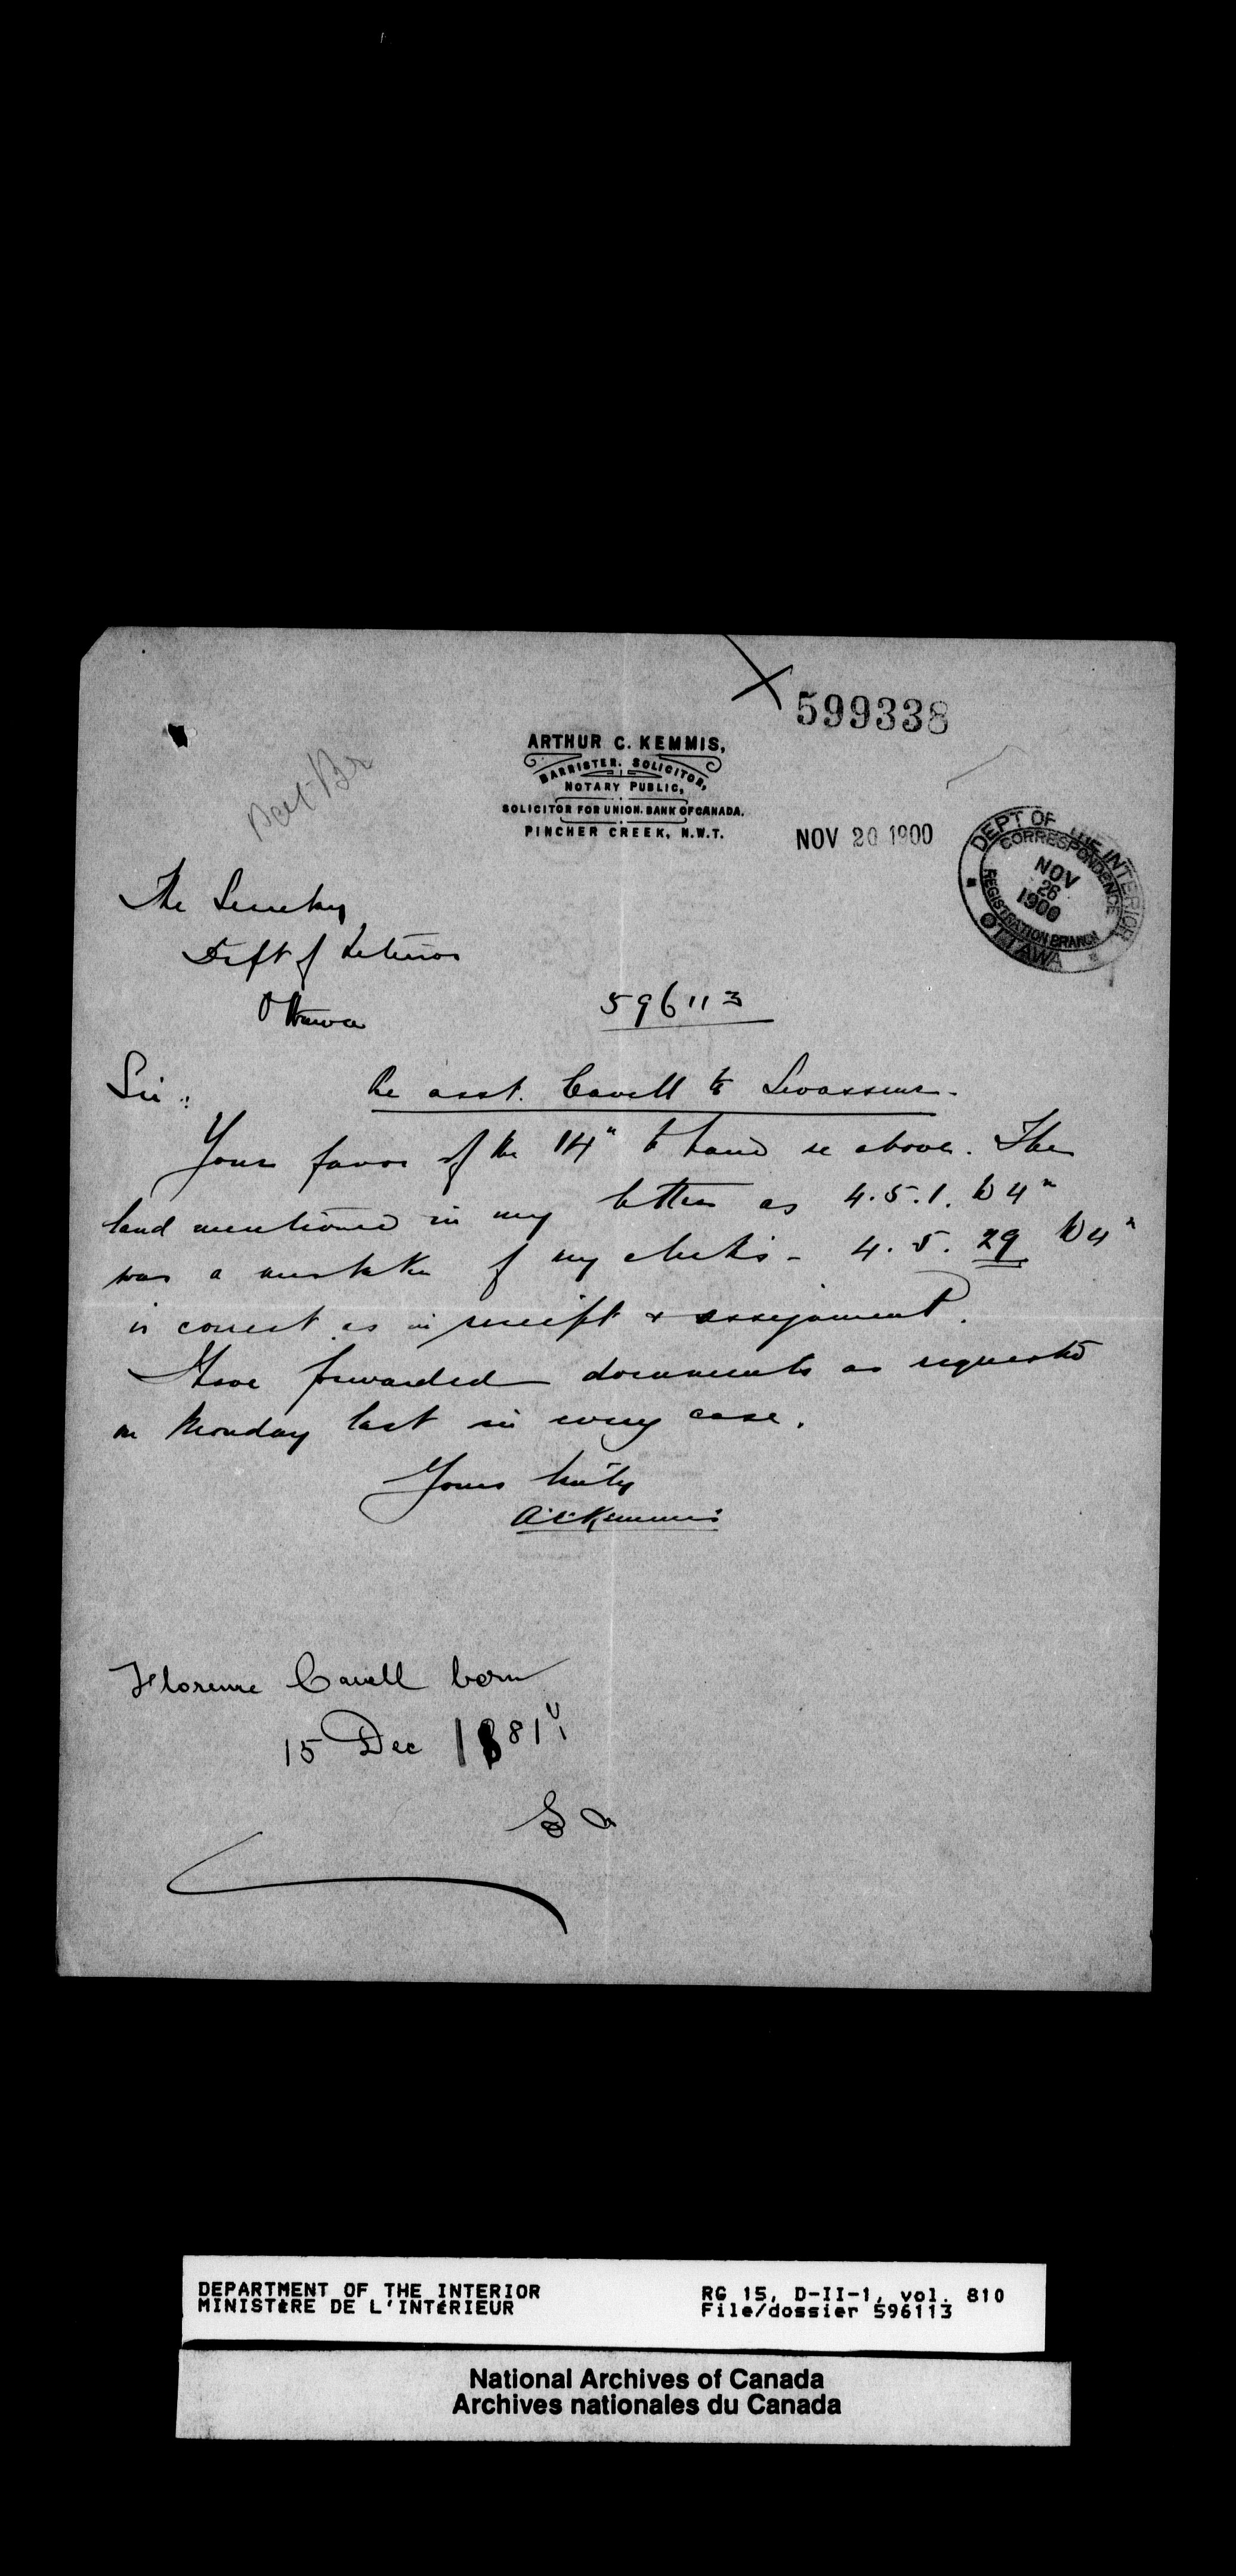 599338
ARTHUR C. KEMMIS,
BARRISTER. SOLICITOR,
NOTARY PUBLIC,
SOLICITOR FOR UNION BANK OF CANADA.
PINCHER CREEK, N.W.T.
NOV 20 1900
DEPT OF THE INTERIOR
CORRESPONDENCE
NOV
26
1900
REGISTRATION BRANCH
OTTAWA
The Secretary
Dept of Interior
Ottawa
596113
Sir: Re asst. Cavell to Levasseur.
Your favor of the 14" to hand re above. The
land mentioned in my letter as 4.5.1. W 4"
was a mistake of my clerks - 4. 5. 29 W4"
is correct as in receipt & assignment.
Have forwarded documents as requested
on Monday last in every case.
Yours truly
A.C. Kemmis
Florence Cavell born
15 Dec 1881
DEPARTMENT OF THE INTERIOR
MINISTÈRE DE L'INTÉRIEUR
RG 15, D-II-1, vol. 810
File/dossier 596113
National Archives of Canada
Archives nationales du Canada